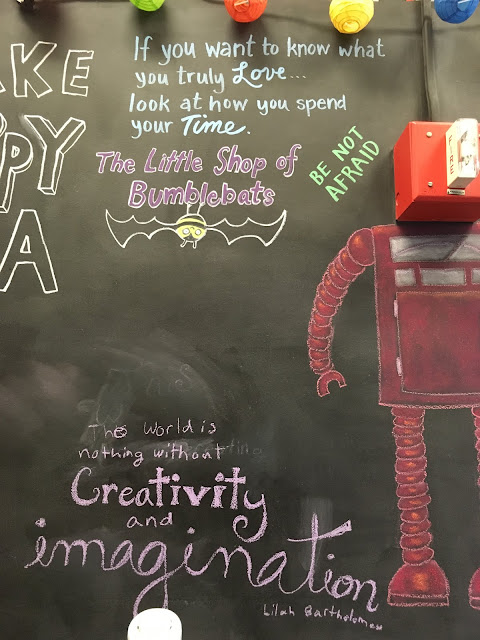 If you want to know what
you truly Love...
look at how you spend
your Time.
AKE
PY
A
The Little Shop of
Bumblebats
BE NOT
AFRAID
The World is
nothing without
Creativity
and
imagination
Lilah Bartholomew